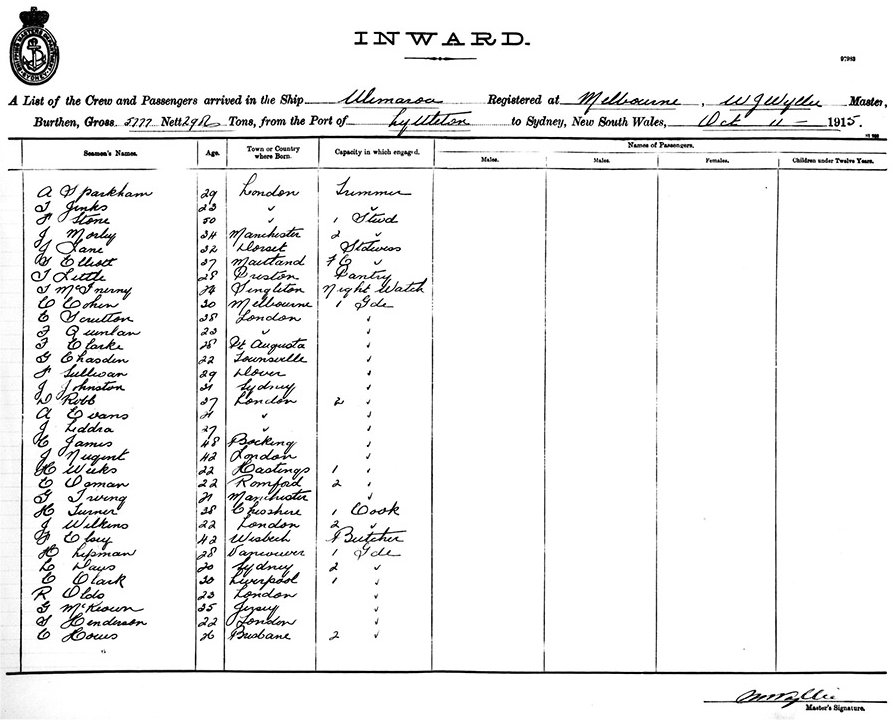 INWARD.
SHIPPING MASTERS DEPARTMENT
SYDNEY
97983
A List of the Crew and Passengers arrived in the Ship Ulimaroa Registered at Melbourne, W J Wyllie Master,
Burthen, Gross 5777 Nett Tons, from the Port of Lyttleton to Sydney, New South Wales, Oct 11 - 1915.
Seamen's Names. Age. Town or Country where Born. Capacity in which engaged. Names of Passengers.
Males. Males. Females. Children under Twelve Years.
A Sparkham 29 London Trimmer
T Jinks 23 " "
F Stone 50 " 1 Stwd
J Morly 34 Manchester 2 "
J Lane 32 Dorset Stewess
Elliott 37 Maitland F C "
T Little 28 Preston Pantry
T McInerny Singleton Night Watch
C Cohen 30 Melbourne 1 Gde
E Scrutton 38 London "
F Quinlan 23 " "
F Clarke 28 Pt Augusta "
G Chasden 22 Townsville "
F Sullivan 29 Dover "
J Johnston 31 Sydney "
D Robb 37 London 2 "
A Evans 21 " "
J Liddra 27 " "
C James 48 Bocking "
J Nugent 42 London "
H Weeks 22 Hastings 1 "
C Ogman 22 Romford 2 "
G Irving 21 Manchester "
H Turner 38 Cheshire 1 Cook
J Wilkins 22 London 2 "
F Elsey 42 Wisbech Butcher
H Lipman 28 Vancouver 1 Gde
L Davis 20 Sydney 2 "
C Clark 30 Liverpool 1 "
R Olds 23 London "
G McKeown 35 Jersey "
T Henderson 22 London "
C Howes 26 Brisbane 2 "
W J Wyllie
Master's Signature.